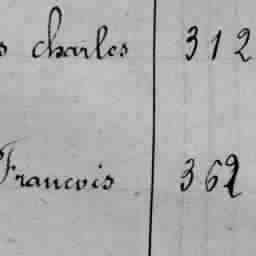 s charles 312
Francois 362